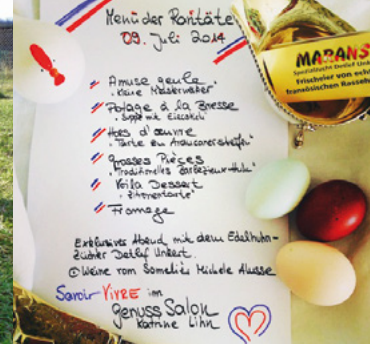 Menü der Raritäten
09. Juli 2014
Amuse geule
"Kleine Meisterwasser"
Potage à la Bresse
"Suppe mit Eierstich"
Hors d'œuvre
"Tarte en Araucanerstreifen"
Grosses Pièces
"Traditionelles Barbezieux-Huhn"
Voilà Dessert
"Zitronentarte"
Fromage
Exklusives Abend mit dem Edelhuhn-
züchter Detlef Unkert.
© Weine vom Somelier Michele
Savoir VIVRE im
genuss Salon
Katrine Lihn
MARANS
Spezialzucht Detlef Unk
Frischeier von ech
französischen Rasseh